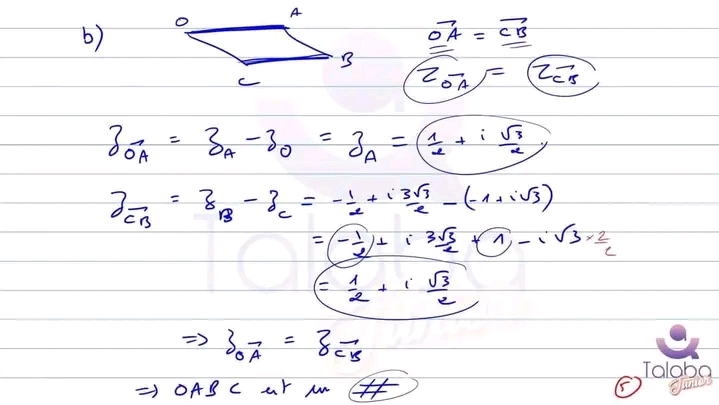 b) O A B C
OA⃗ = CB⃗
Z_OA⃗ = Z_CB⃗
Z_OA⃗ = Z_A - Z_O = Z_A = 1/2 + i √3/2
Z_CB⃗ = Z_B - Z_C = -1/2 + i 3√3/2 - (-1 + i√3)
= -1/2 + i 3√3/2 + 1 - i√3 × 2/2
= 1/2 + i √3/2
⇒ Z_OA⃗ = Z_CB⃗
⇒ OABC est un #
Talaba
Junior
5